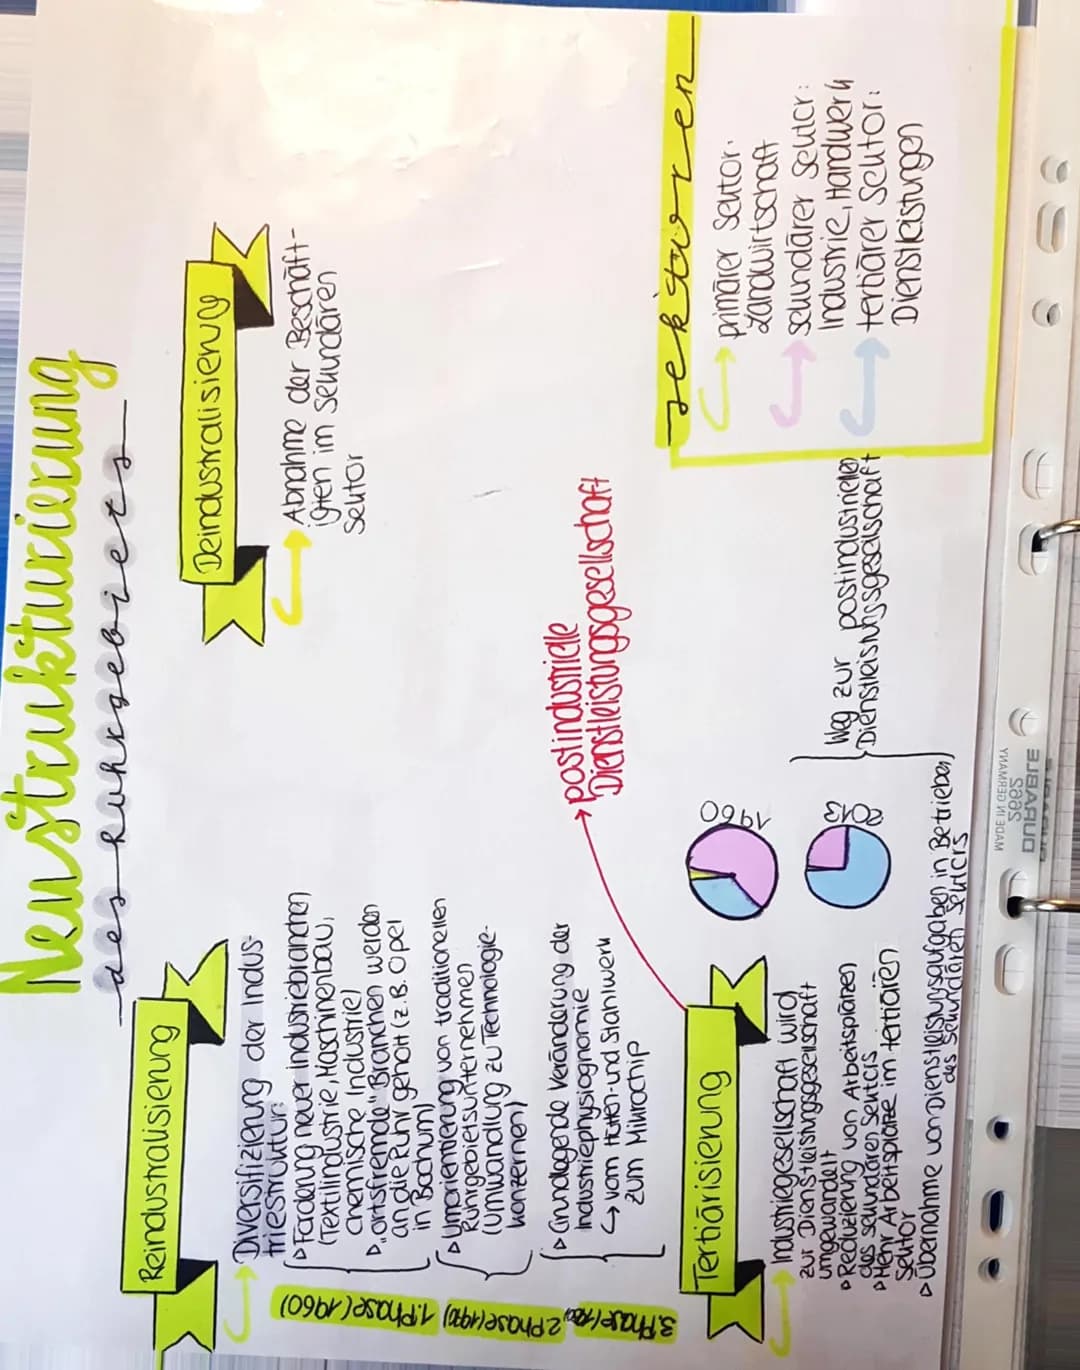 Neustrukturierung
des Ruhrgebiets
Reindustralisierung
Diversifizierung der Indus-
triestruktur:
▹ Förderung neuer Industriebranchen
(Textilindustrie, Maschinenbau,
chemische Industrie)
▹ „ortsfremde" Branchen werden
an die Ruhr geholt (z.B. Opel
in Bochum)
▹ Umorientierung von traditionellen
Ruhrgebietsunternehmen
(Umwandlung zu Technologie-
konzernen)
▹ Grundlegende Veränderung der
Industriephysiognomie
↳ vom Hütten- und Stahlwerk
zum Mikrochip
1. Phase (1960)
2. Phase
3. Phase
Deindustralisierung
Abnahme der Beschäft-
igten im sekundären
Sektor
Tertiärisierung
→ postindustrielle
Dienstleistungsgesellschaft
Industriegesellschaft wird
zur Dienstleistungsgesellschaft
umgewandelt
▹ Reduzierung von Arbeitsplätzen
des sekundären Sektors
▹ Mehr Arbeitsplätze im tertiären
Sektor
▹ Übernahme von Dienstleistungsaufgaben in Betrieben
des sekundären Sektors
1960
2013
Weg zur postindustriellen
Dienstleistungsgesellschaft
Sektoren
primärer Sektor:
Landwirtschaft
sekundärer Sektor:
Industrie, Handwerk
tertiärer Sektor:
Dienstleistungen
MADE IN GERMANY
DURABLE